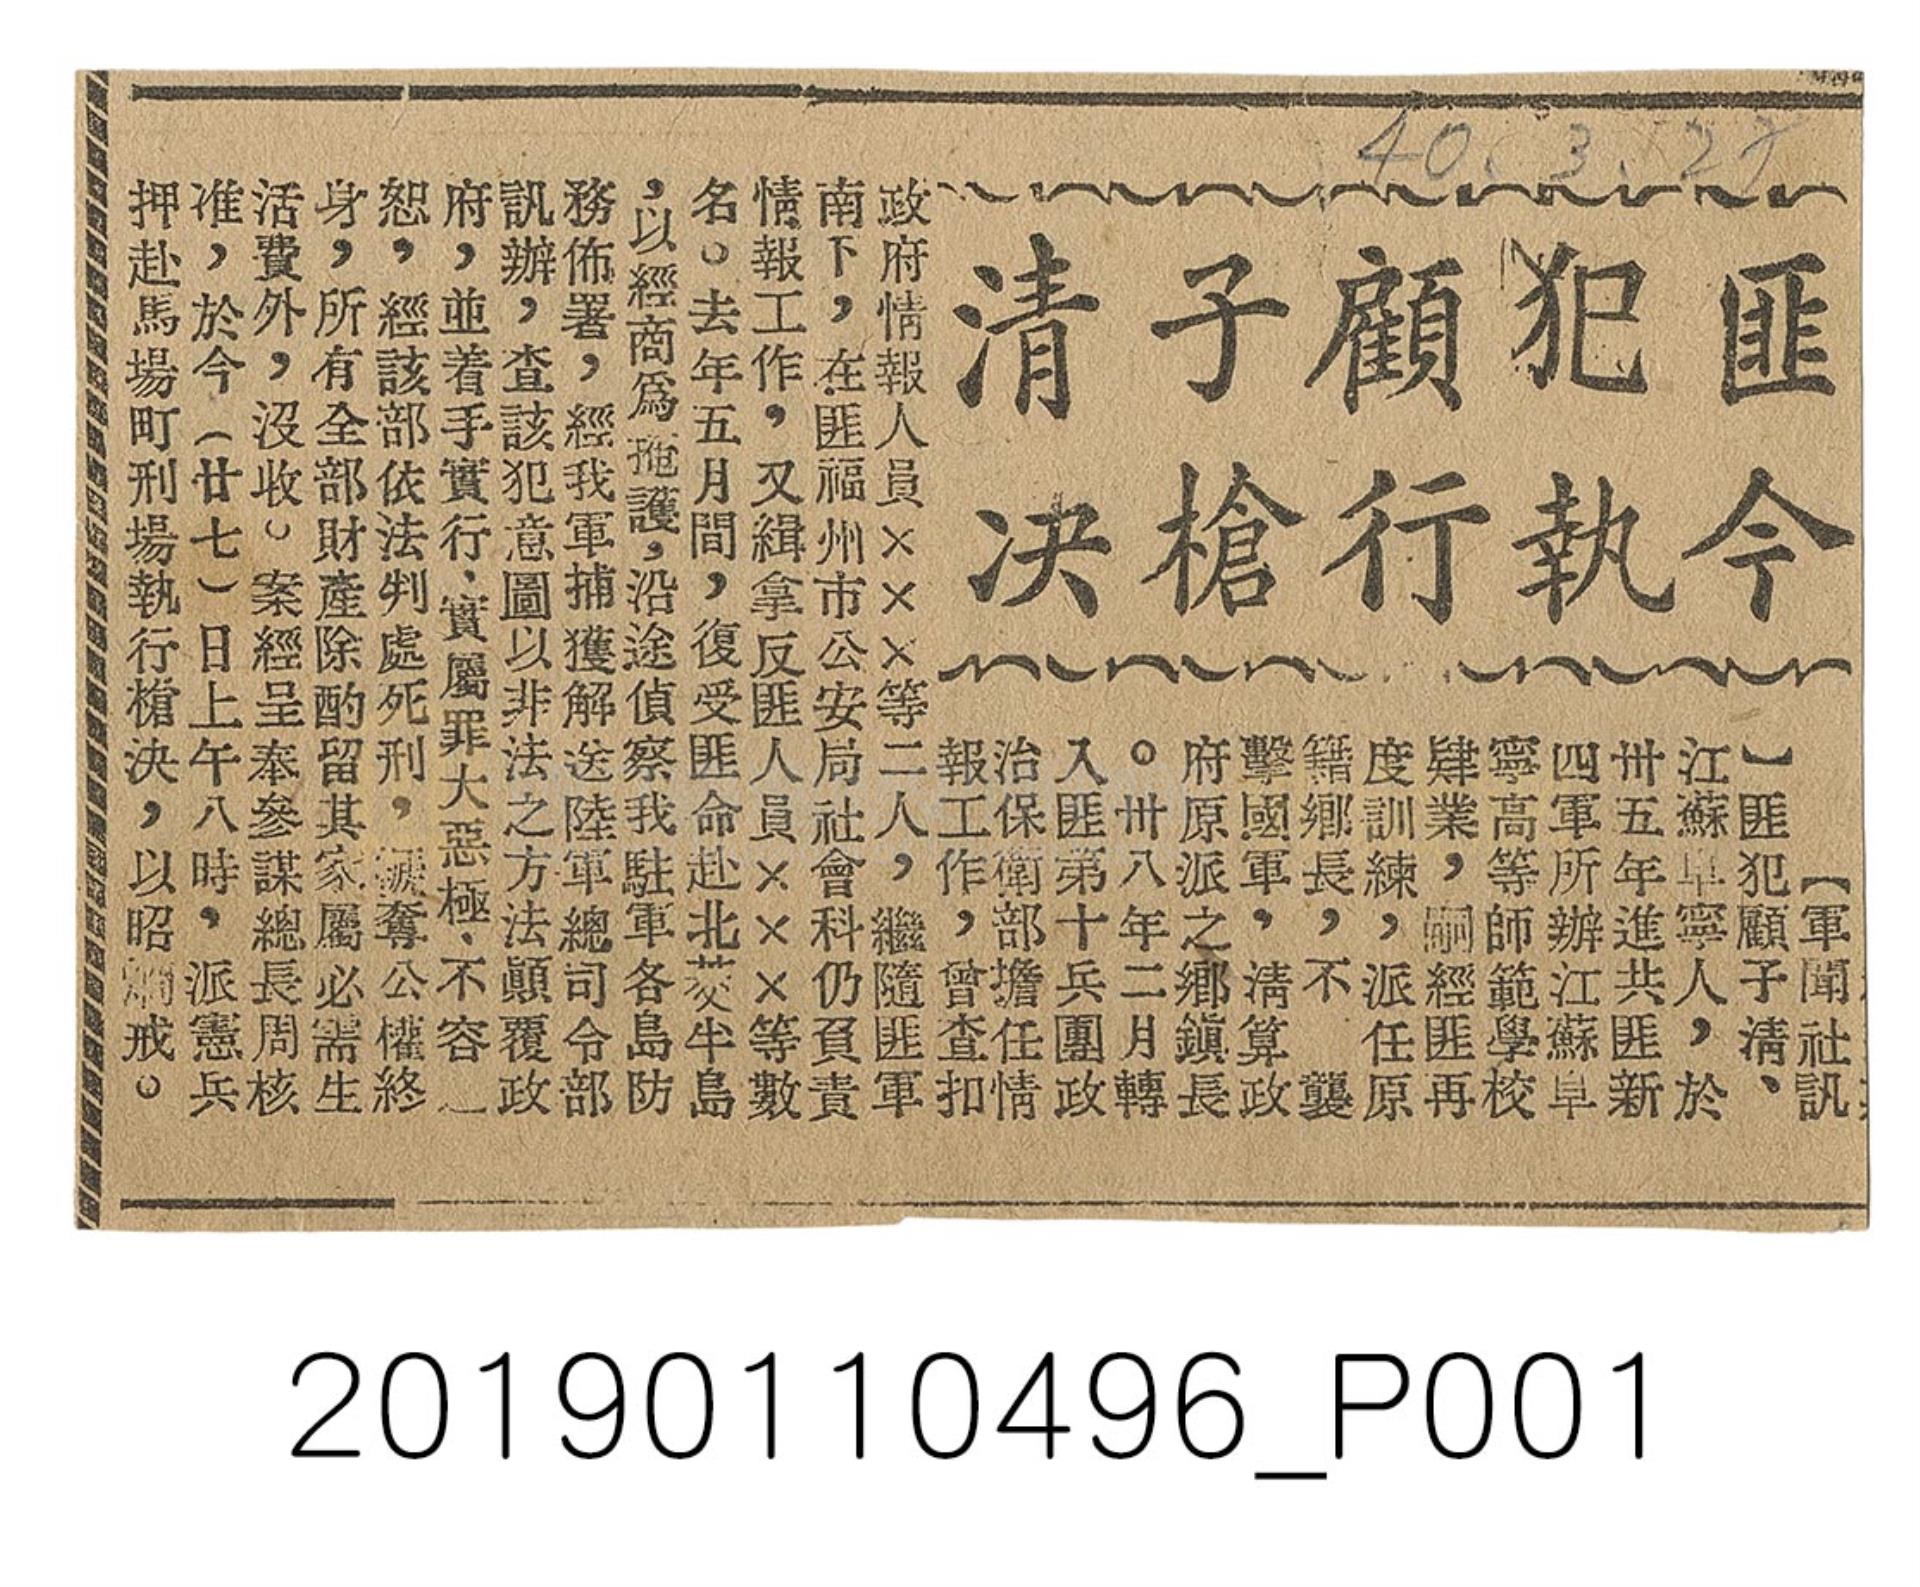 40.3.27
匪犯顧子清
今執行槍决
【軍聞社訊
】匪犯顧子淸、
江蘇阜寧人，於
卅五年進共匪新
四軍所辦江蘇阜
寧高等師範學校
肄業，嗣經匪再
度訓練，派任原
籍鄉長，不 襲
擊國軍，淸算政
府原派之鄉鎭長
。卅八年二月轉
入匪第十兵團政
治保衛部擔任情
報工作，曾查扣
政府情報人員×××等二人，繼隨匪軍
南下，在匪福州市公安局社會科仍負責
情報工作，又緝拿反匪人員×××等數
名。去年五月間，復受匪命赴北茭半島
，以經商爲掩護，沿途偵察我駐軍各島防
務佈署，經我軍捕獲解送陸軍總司令部
訊辦，查該犯意圖以非法之方法顚覆政
府，並着手實行、實屬罪大惡極、不容
恕，經該部依法判處死刑，褫奪公權終
身，所有全部財產除酌留其家屬必需生
活費外，沒收。案經呈奉參謀總長周核
准，於今（廿七）日上午八時，派憲兵
押赴馬場町刑場執行槍決，以昭烱戒。
20190110496_P001